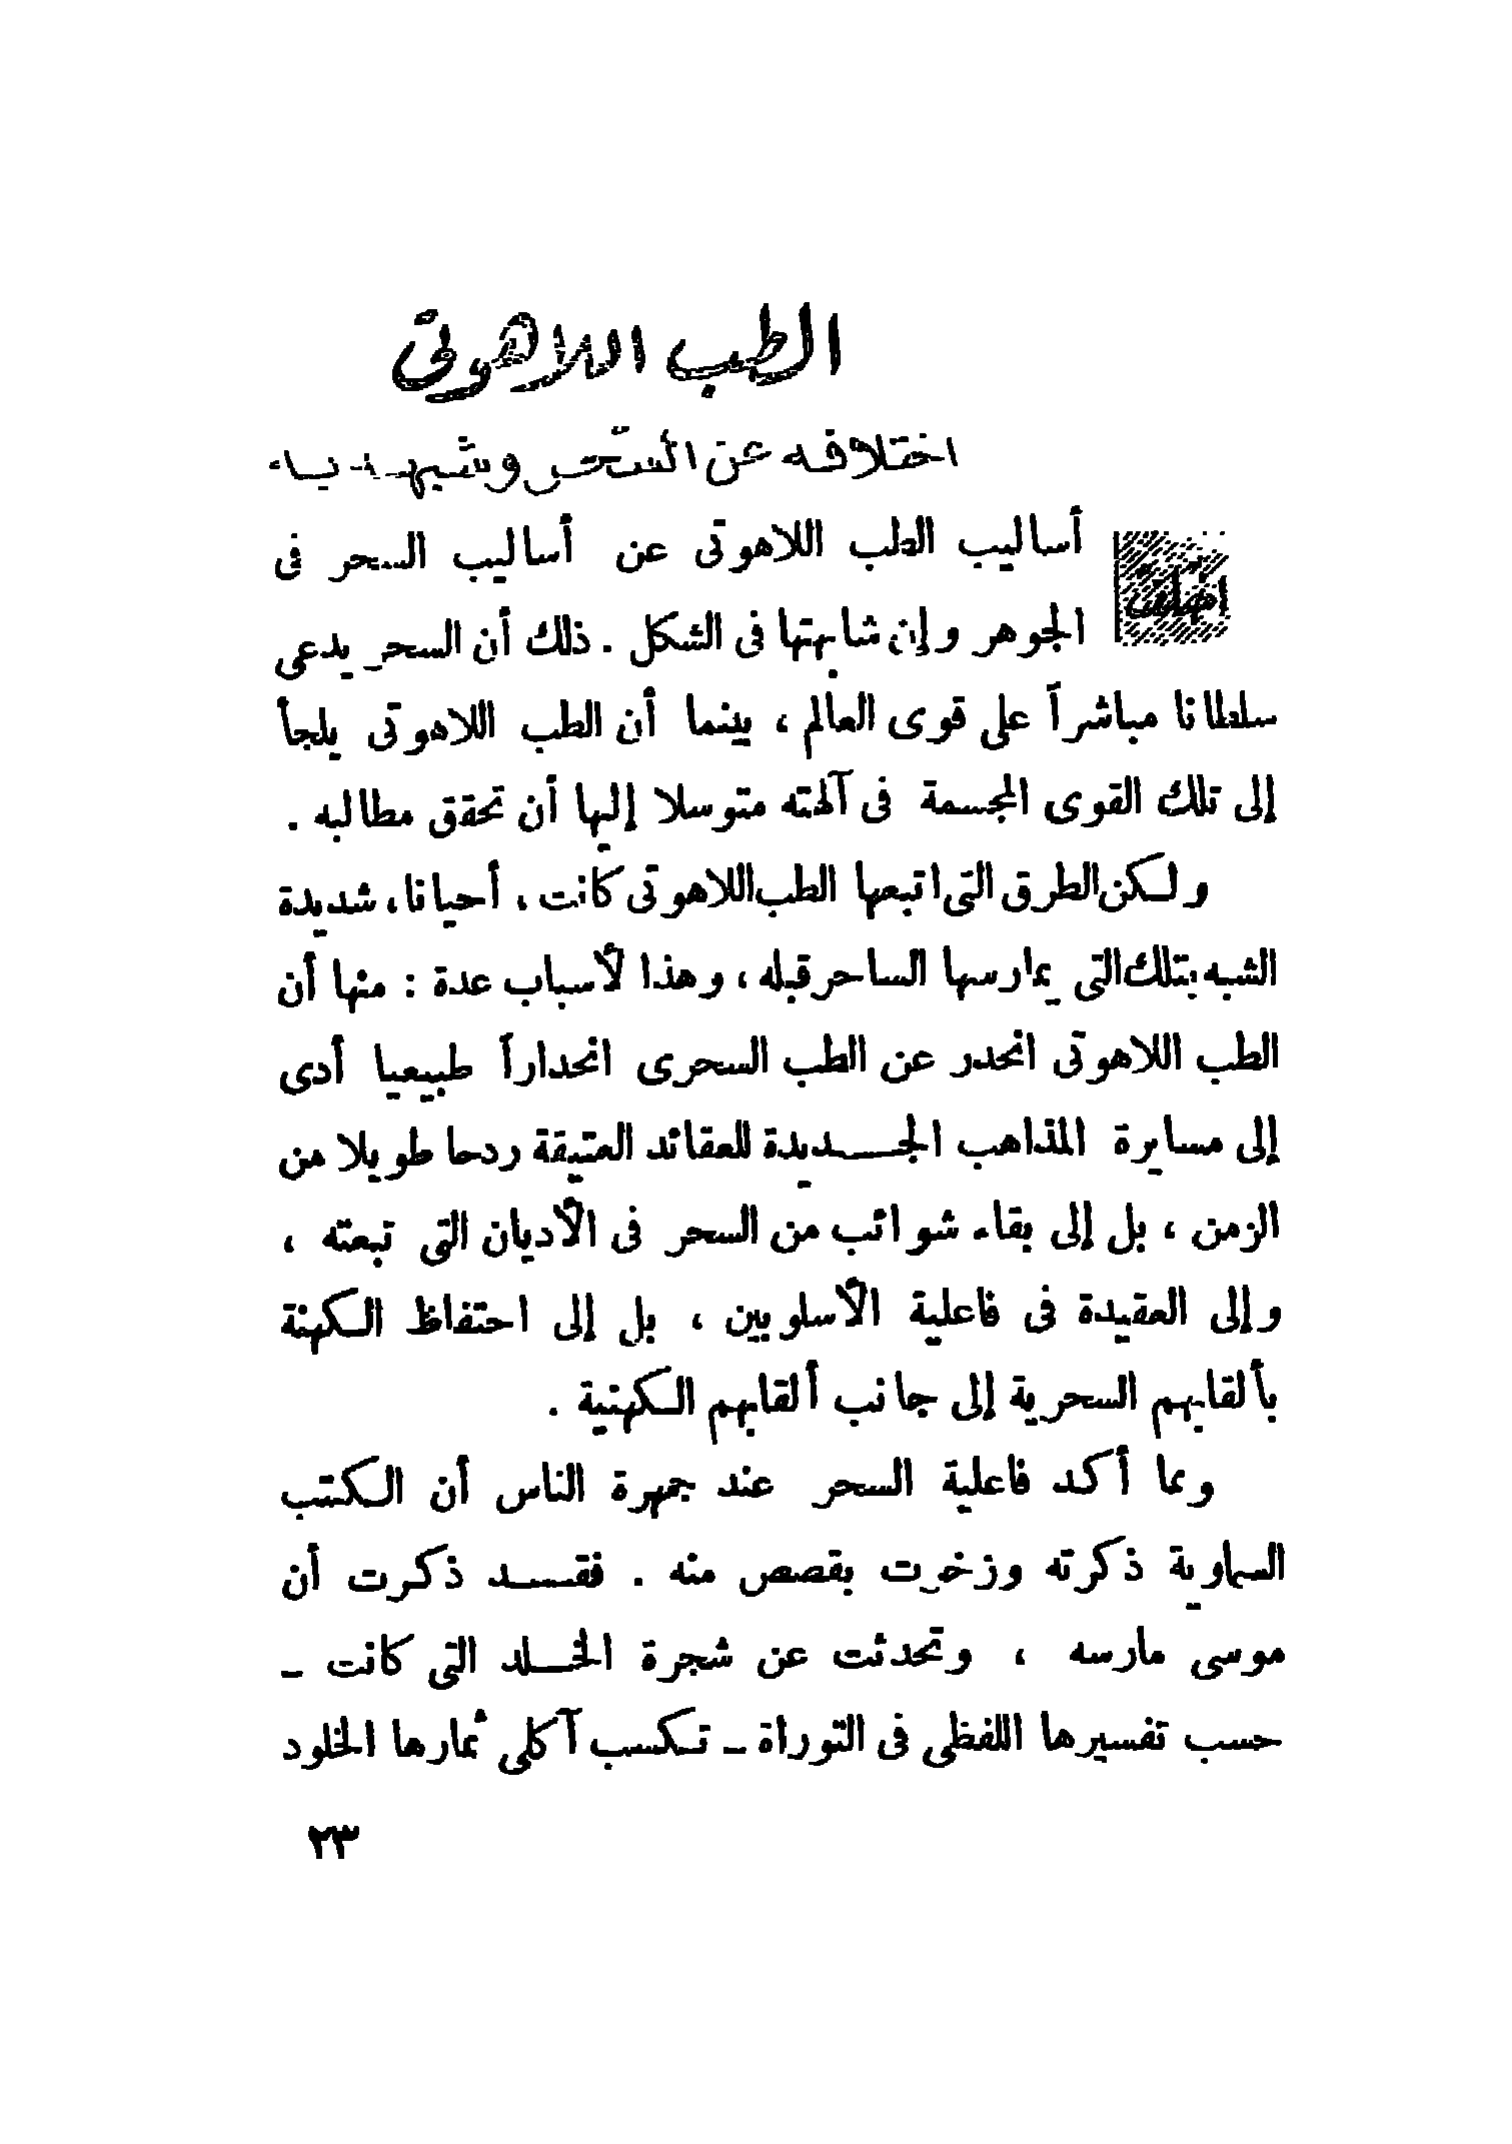 الطب اللاهوتى
اختلافه عن السحر وشبهه به
اختلفت أساليب الطب اللاهوتى عن أساليب السحر فى
الجوهر وإن شابهتها فى الشكل . ذلك أن السحر يدعى
سلطانا مباشراً على قوى العالم ، بينما أن الطب اللاهوتى يلجأ
إلى تلك القوى المجسمة فى آلهته متوسلا إليها أن تحقق مطالبه .
ولكن الطرق التى اتبعها الطب اللاهوتى كانت ، أحيانا ، شديدة
الشبه بتلك التى يمارسها الساحر قبله ، وهذا لأسباب عدة : منها أن
الطب اللاهوتى انحدر عن الطب السحرى انحداراً طبيعيا أدى
إلى مسايرة المذاهب الجديدة للعقائد العتيقة ردحا طويلا من
الزمن ، بل إلى بقاء شوائب من السحر فى الأديان التى تبعته ،
وإلى العقيدة فى فاعلية الأسلوبين ، بل إلى احتفاظ الكهنة
بألقابهم السحرية إلى جانب ألقابهم الكهنية .
ومما أكد فاعلية السحر عند جمهرة الناس أن الكتب
السماوية ذكرته وزخرت بقصص منه . فقد ذكرت أن
موسى مارسه ، وتحدثت عن شجرة الخلد التى كانت -
حسب تفسيرها اللفظى فى التوراة - تكسب آكلى ثمارها الخلود
٢٣